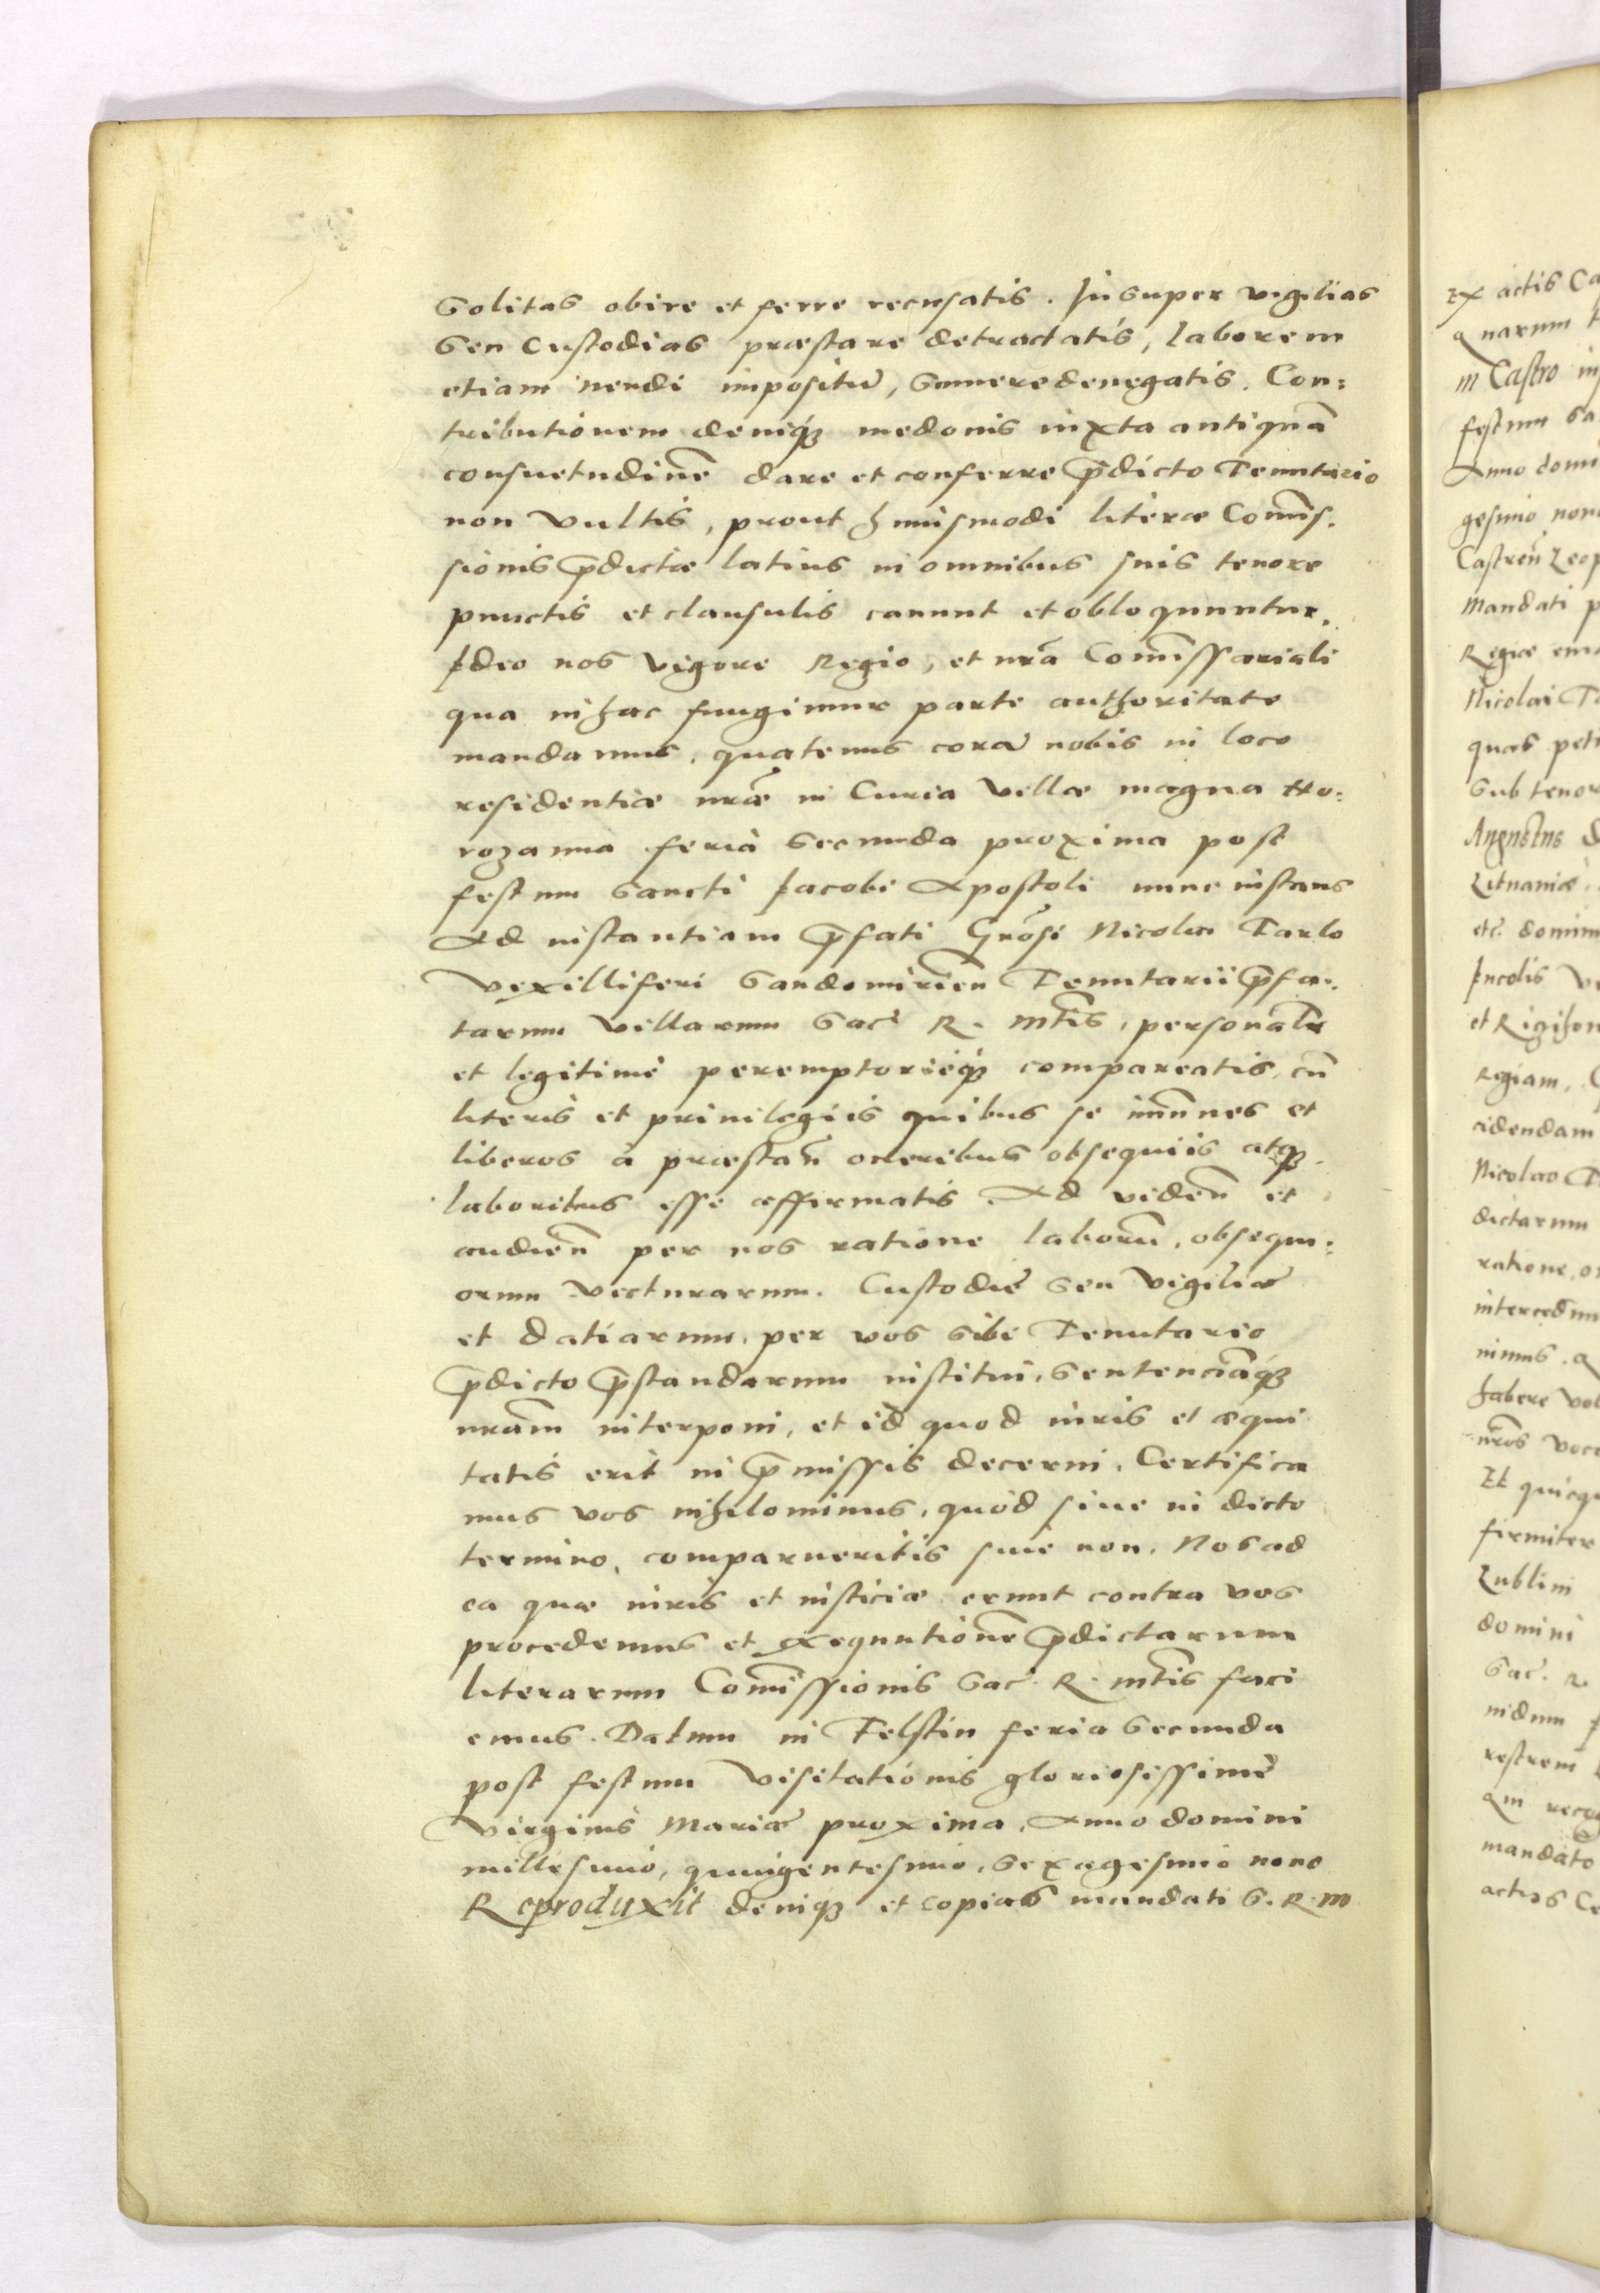 solitas obire et ferre recusatis. Insuper vigilias
seu Custodias præstare detractatis, laborem
etiam nendi impositũ, sumere denegatis. Con:
tributionem deniqꝫ medonis iuxta antiquã
consuetudinẽ dare et conferre p̃dicto Tenutario
non vultis, prout huiusmodi literæ Com̃is.
sionis p̃dictæ latius in omnibus suis tenore
punctis et clausulis canunt et obloquuntur.
Ideo nos vigore Regio, et nrã Com̃issariali
qua in hac fungimur parte authoritate
mandamus, quatenus corã nobis in loco
residentiæ nræ̃ in Curia Villæ magna Ho:
rozanna feria secunda proxima post
festum Sancti Jacobi Apostoli nunc instans
Ad instantiam p̃fati Grõsi Nicolai Tarlo
Vexilliferi Sandomirieñ Tenutarii p̃fa:
tarum villarum Sac̃ R. Mtĩs, personalr̃
et legitimè peremptorieqꝫ compareatis, cũ
literis et priuilegiis quibus se im̃unes et
liberos à præstañ oneribus obsequiis atqꝫ
laboribus esse affirmatis. Ad videñ et
audieñ per nos ratione laborũ, obsequi:
orum vecturarum. Custodiẽ seu Vigiliæ
et datiarum, per vos sibi Tenutario
p̃dicto p̃standarum institui, sentenciãqꝫ
nrãm interponi, et id quod iuris et æqui
tatis erit in p̃missis decerni. Certifica
mus vos nihilominus, quòd siue in dicto
termino, comparueritis siue non. Nos ad
ea quæ iuris et iusticiæ erunt contra vos
procedemus et exequutionẽ p̃dictarum
literarum Com̃issionis Sac. R. Mtĩs faci
emus. Datum in Felstin feria secunda
post festum Visitationis gloriosissimẽ
Virginis Mariæ proxima, Anno domini
millesimo, quingentesimo, sexagesimo nono
Reproduxit deniqꝫ et copias mandati S. R. M
Ex actis Ca
quarum
in Castro in
festum Sa
Anno domi
gesimo non
Castreñ Leop
Mandati p
Regiæ
Nicolai T
quas pet
Sub tenor
Augustus D
Lituaniæ
etc̃. domin
Incolis
et
regiam,
Nicolao T
dictarum
ratione, o
intercedun
nimus. Q
habere vol
nr̃os voc
Et quicqu
firmiter
Lublini
domini
Sac. R.
mandato
actis C